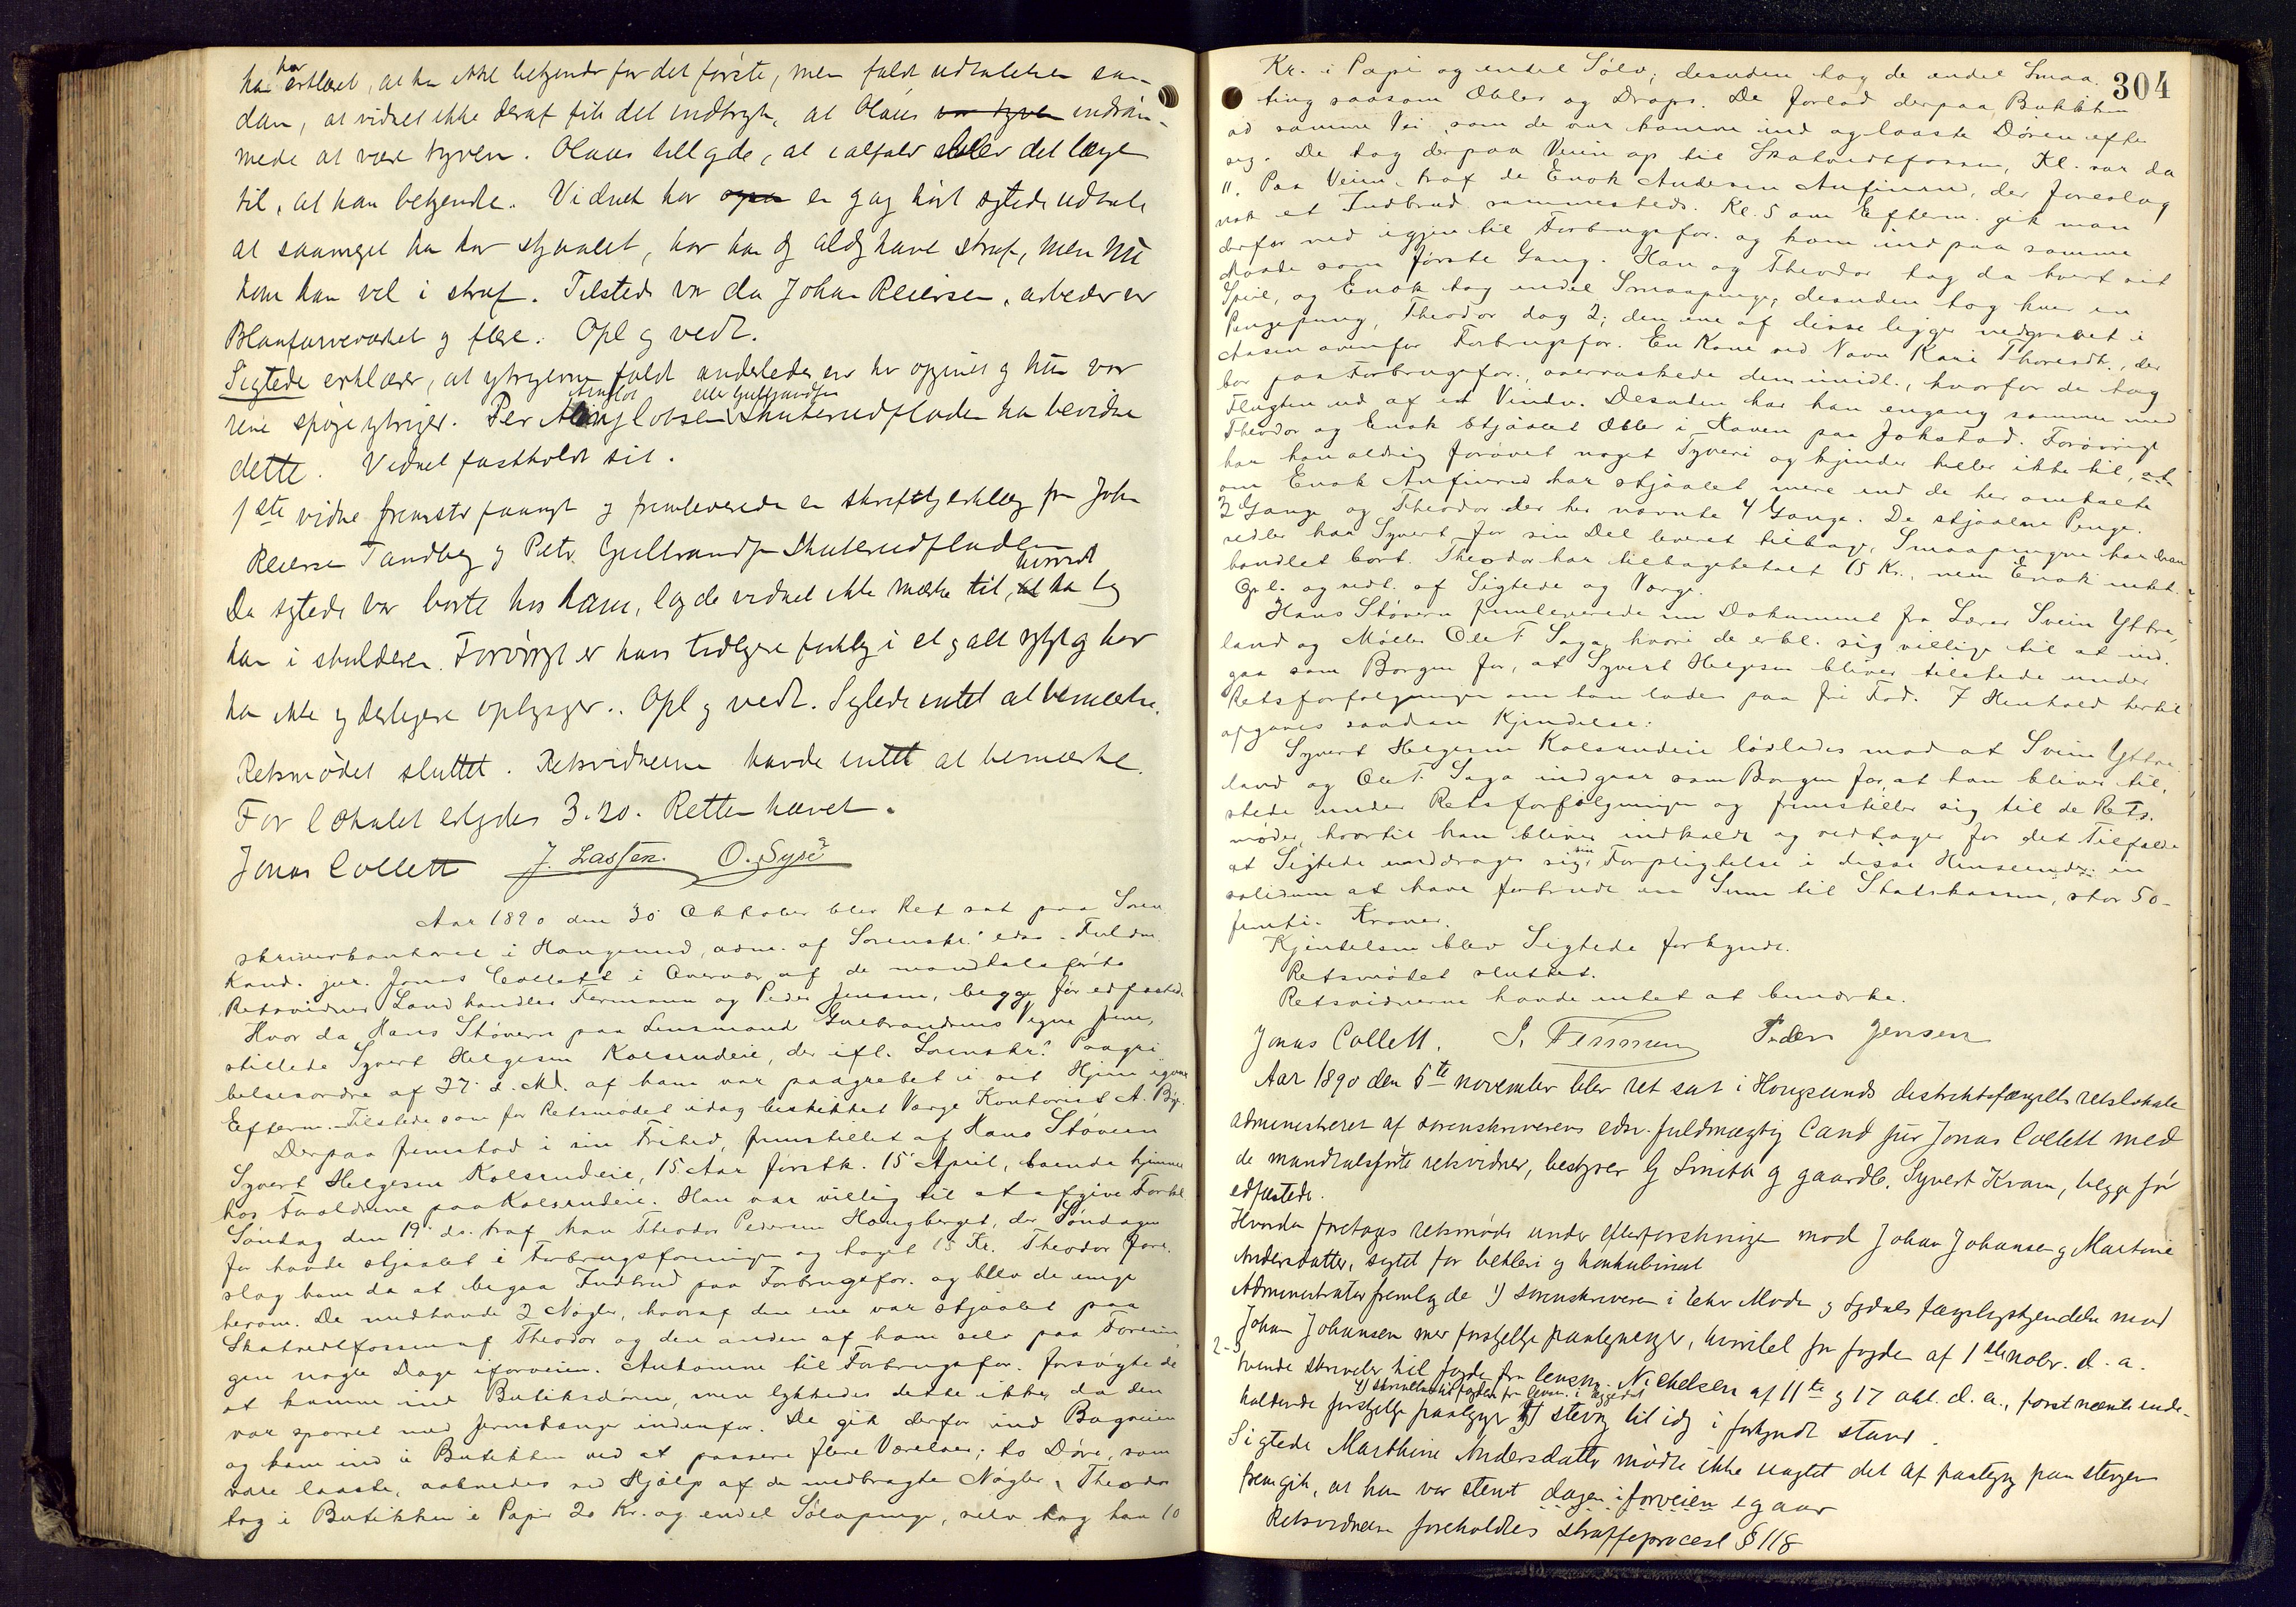 ha har erklæret, at ha ikke bekjende for det første, men faldt udtalelsen saa-
dan, at vidnet ikke deraf fik det indtryk, at Olaus var tyven indrøm-
mede at være tyven. Olaus tillagde, at ialfald blev det længe
til, at han bekjendte. Vidnet har også en gag hørt sigtede udtale
at saameget ha har stjaalet, har ha dg aldg havt straf, men nu
kom han vel i straf. Tilstede var da Johan Reiersen, arbeder ver
Blaafarveværket g flere. Opl g vedt.
Sigtede erklærer, at ytrgerne faldt anderledes en her opgivet g kun var
rene spøgeytriger. Per Skuterudfladen ka bevidne
eller Gulbrandsen
dette. Vidnet fastholdt sit.
1ste vidne fremstr paanyt g fremleverede en skriftlg erklæg fra Joh
Reiersen Tandberg g Petr. Gulbrandsen Skuterudfladen
Da sigtede var borte hos ham, lagde vidnet ikke mærke til, hvorvidt ha tog
ha i skulderen. Forøvrigt er hans tidligere forklg i et g alt rigtgt g har
ha ikke yderligere oplysger. Opl g vedt. Sigtede intet at bemærke.
Retsmødet sluttet. Retsvidnerne havde intet at bemærke.
For lokalet erlagdes 3.20. Retten hævet.
Jonas Collett J. Lassen. O. Syse
Aar 1890 den 30 Oktober blev Ret sat paa Soren
skriverkontoret i Hougsund, adm. af Sorenskr.s edsv. Fuldm.
Kand. jur. Jonas Collett i Overvær af de mandtalsførte
Retsvidner Landhandler Fermann og Peder Jensen, begge før edfæstede
Hvor da Hans Støvern paa Lensmand Gulbrandsens Vegne frem,
stillede Syvert Helgesen Kolsrudeie, der ifl. Sorenskr.s Paagri
belsesordre af 27. d. Md. af ham var paagrebet i sit Hjem igaar
Efterm. Tilstede som for Retsmødet idag beskikket Værge Kontorist A.
Derpaa fremstod i sin Frihed, fremstillet af Hans Støvern
Syvert Helgesen Kolsrudeie, 15 Aar førstk. 15 April, boende hjemme
hos Forældrene paa Kolsrudeie. Han var villig til at afgive Forkl.
Søndag den 19. ds. traf han Theodor Pedersen Hougberget, der Søndagen
før havde stjaalet i Forbrugsforeningen og taget 15 Kr. Theodor fore-
slog ham da at begaa Indbrud paa Forbrugsfor. og blev de enige
herom. De medhavde 2 Nøgler, hvoraf den ene var stjaalet paa
Skotvedtfossen af Theodor og den anden af ham selv paa Forenin
gen nogle Dage iforveien. Ankomne til Forbrugsfor. forsøgte de
at komme ind Butiksdøren, men lykkedes dette ikke, da den
var sperret med Jernstænger indenfor. De gik derfor ind Bagveien
og kom ind i Butikken ved at passere flere Værelser; to Døre, som
vare laaste, aabnedes ved Hjælp af de medbragte Nøgler. Theodor
tog i Butikken i Papir 20 Kr. og endel Sølvpenge, selv tog han 10
304
Kr. i Papir og endel Sølv; desuden tog de endel Smaa
ting saasom Æbler og Drops. De forlod derpaa Butikken
ad samme Vei, som de var komne ind og laaste Døren efter
sig. De tog derpaa Veien op til Skotvedtfossen, Kl. var da
11. Paa Veien traf de Enok Andersen Anfinrud, der foreslog
nok et Indbrud sammesteds. Kl. 5 om Efterm. gik man
derfor ned igjen til Forbrugsfor. og kom ind paa samme
Maade som første Gang. Han og Theodor tog da hvert sit
Speil, og Enok tog endel Smaapenge, desuden tog hver en
Pengepung, Theodor dog 2; den ene af disse ligger nedgravet i
Aasen ovenfor Forbrugsfor. En Kone ved Navn Kari Thoresdt., der
bor paa Forbrugsfor., overraskede dem imidl., hvorfor de tog
Flugten ud af et Vindu. Desuden har han engang sammen med
Theodor og Enok stjaalet Æbler i Haven paa Jokstad. Forøvrigt
har han aldrig forøvet noget Tyveri og kjender heller ikke til, at
om Enok Anfinrud har stjaalet mere end de her omtalte
2 Gange og Theodor der her nævnte 4 Gange. De stjaalne Penge-
sedler har Syvert for sin Del leveret tilbage, Smaapengene har han
handlet bort. Theodor har tilbagebetalt 15 Kr., men Enok intet.
Opl. og vedt. af Sigtede og Værge.
Hans Støvern fremleverede en Dokument fra Lærer Svein Yttre,
land og Møller Ole T. Saga, hvori de erkl. sig villige til at ind-
gaa som Borgen for, at Syvert Helgesen bliver tilstede under
Retsforfølgningen om han lades paa fri Fod. I Henhold hertil
afgaves saadan Kjendelse:
Syvert Helgesen Kolsrudeie løslades mod at Svein Yttre
land og Ole T. Saga indgaar som Borgen for, at han bliver til,
stede under Retsforfølgningen og fremstiller sig til de Rets,
møder, hvortil han bliver indkaldt og vedtager for det Tilfælde
at Sigtede unddrager sig sin Forpligtelse i disse Henseender: en
solidum at have forbrudt en Sum til Statskassen, stor 50-
femti- Kroner.
Kjendelsen blev Sigtede forkyndt.
Retsmødet sluttet.
Retsvidnerne havde intet at bemærke.
Jonas Collett. J. Fermann Peder Jensen
Aar 1890 den 5te november blev ret sat i Hougsunds distriktsfængsels retslokale
administreret af sorenskriverens edsv. fuldmægtig Cand jur Jonas Collett med
de mandtalsførte retsvidner, bestyrer G Smith g gaardb. Syvert Kvam, begge før
edfæstede.
Hvorda foretages retsmøde under efterforskningen mod Johan Johansen g Martine
Andersdatter, sigtet for betleri g konkubinat
Administrator fremlagde 1) sorenskriveren i Eker Modum g Sigdals fængslgskjendelse mod
Johan Johansen mer forskjellge paategnenger, hvoriblt fra fogden af 1ste nobr. d. a.
2-3
tvende skrivelser til fogden fra lensm. Nichelsen af 11te g 17 okt. d. a., førstnævnte inde-
4) skrivelse til fogden fra lensm. i
holdende forskjellge paategger 5) stevng til idg i forkyndt stand.
Sigtede Marthine Andersdatter mødte ikke uagtet det af paategng paa stevngen
fremgik, at hun var stevnt dagen iforveien igaar
Retsvidnerne foreholdtes straffeprocesl § 118